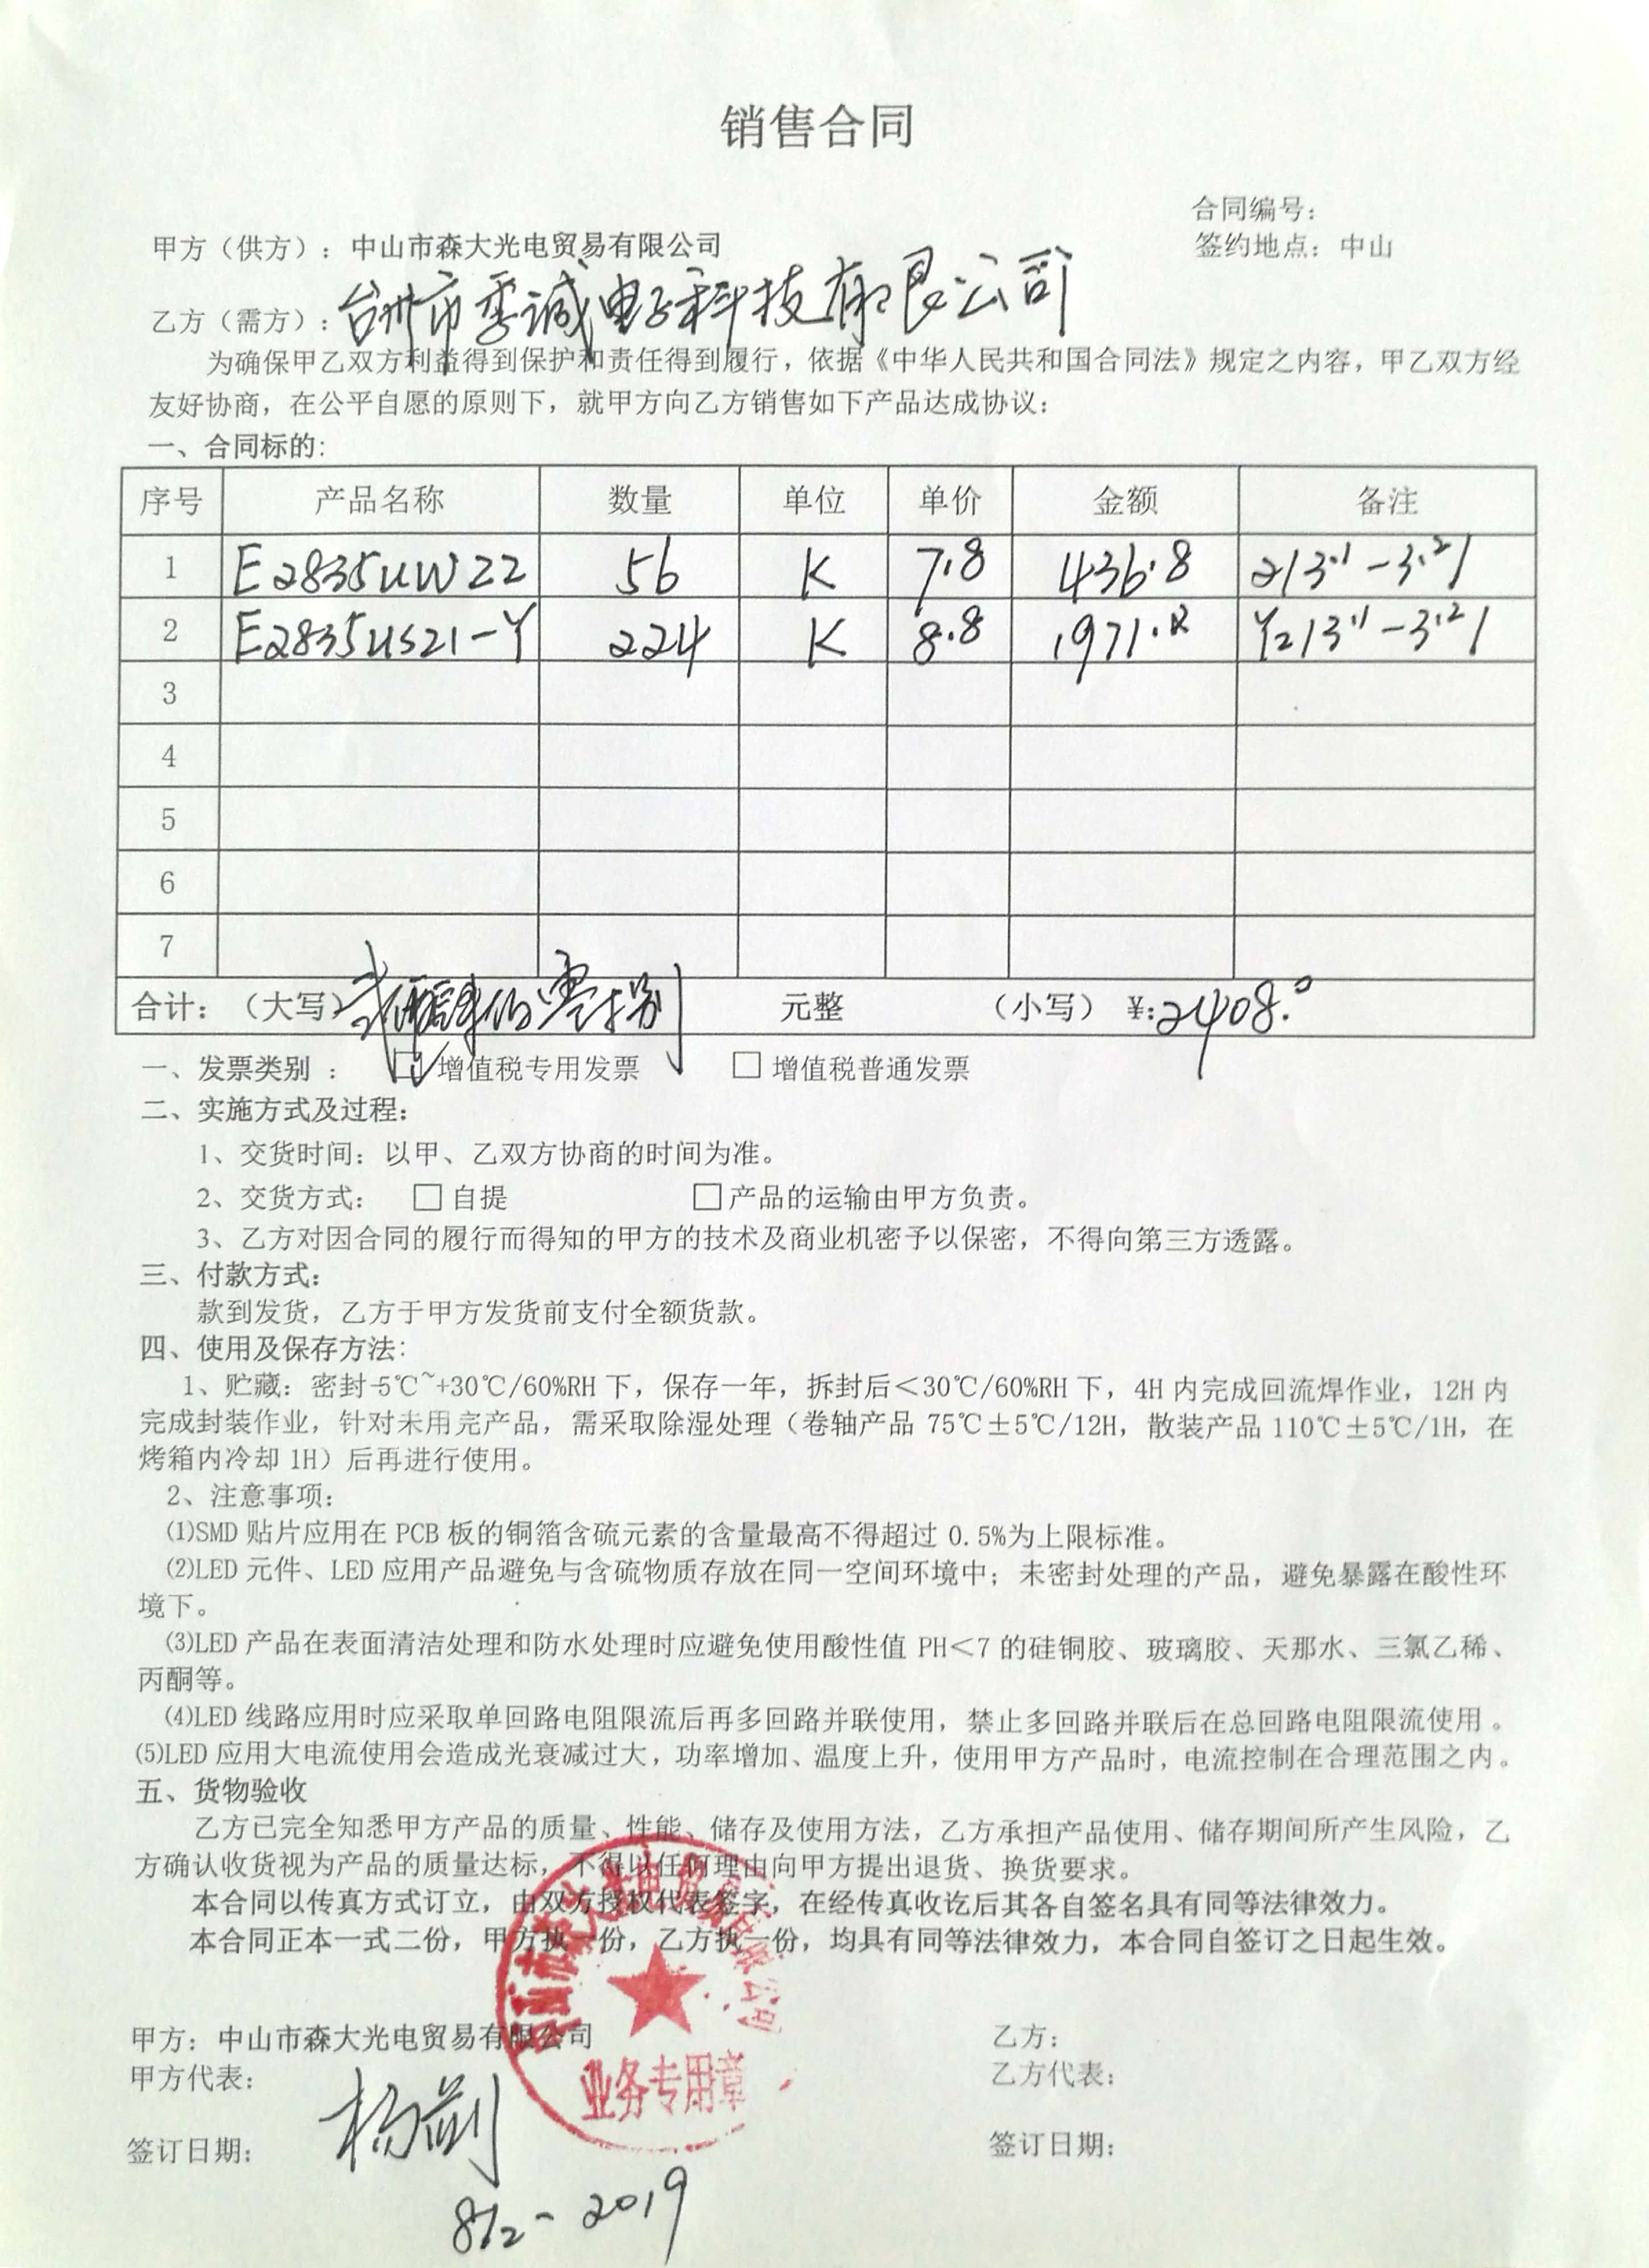 销售合同
合同编号：
甲方（供方）：中山市森大光电贸易有限公司
签约地点：中山
乙方（需方）：台州市季诚电子科技有限公司
为确保甲乙双方利益得到保护和责任得到履行，依据《中华人民共和国合同法》规定之内容，甲乙双方经
友好协商，在公平自愿的原则下，就甲方向乙方销售如下产品达成协议：
一、合同标的：
序号 产品名称 数量 单位 单价 金额 备注
1 E2835UW22 56 K 7.8 436.8 2/3.1-3.2/
2 E2835US21-Y 224 K 8.8 1971.2 Y2/3.1-3.2/
3
4
5
6
7
合计：（大写） 元整 （小写）¥：2408.0
一、发票类别： ☑ 增值税专用发票 □ 增值税普通发票
二、实施方式及过程：
1、交货时间：以甲、乙双方协商的时间为准。
2、交货方式： □ 自提 □ 产品的运输由甲方负责。
3、乙方对因合同的履行而得知的甲方的技术及商业机密予以保密，不得向第三方透露。
三、付款方式：
款到发货，乙方于甲方发货前支付全额货款。
四、使用及保存方法：
1、贮藏：密封-5℃~+30℃/60%RH 下，保存一年，拆封后＜30℃/60%RH 下，4H 内完成回流焊作业，12H 内
完成封装作业，针对未用完产品，需采取除湿处理（卷轴产品 75℃±5℃/12H，散装产品 110℃±5℃/1H，在
烤箱内冷却 1H）后再进行使用。
2、注意事项：
⑴SMD 贴片应用在 PCB 板的铜箔含硫元素的含量最高不得超过 0.5%为上限标准。
⑵LED 元件、LED 应用产品避免与含硫物质存放在同一空间环境中；未密封处理的产品，避免暴露在酸性环
境下。
⑶LED 产品在表面清洁处理和防水处理时应避免使用酸性值 PH＜7 的硅铜胶、玻璃胶、天那水、三氯乙稀、
丙酮等。
⑷LED 线路应用时应采取单回路电阻限流后再多回路并联使用，禁止多回路并联后在总回路电阻限流使用。
⑸LED 应用大电流使用会造成光衰减过大，功率增加、温度上升，使用甲方产品时，电流控制在合理范围之内。
五、货物验收
乙方已完全知悉甲方产品的质量、性能、储存及使用方法，乙方承担产品使用、储存期间所产生风险，乙
方确认收货视为产品的质量达标，不得以任何理由向甲方提出退货、换货要求。
本合同以传真方式订立，由双方授权代表签字，在经传真收讫后其各自签名具有同等法律效力。
本合同正本一式二份，甲方执一份，乙方执一份，均具有同等法律效力，本合同自签订之日起生效。
业务专用章
甲方：中山市森大光电贸易有限公司
乙方：
甲方代表：
乙方代表：
签订日期：
签订日期：
8/2-2019